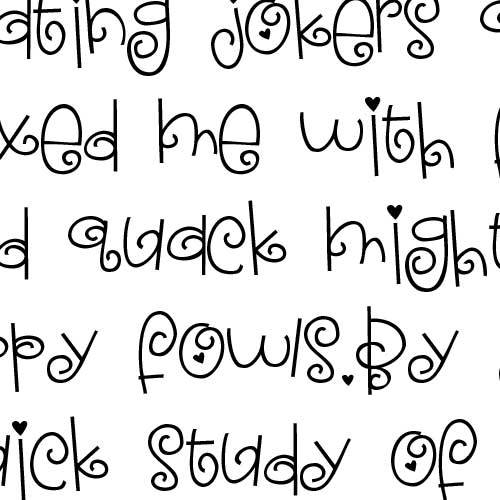 ating jokers
xed me with
d quack might
ppy fowls.By
uick study of